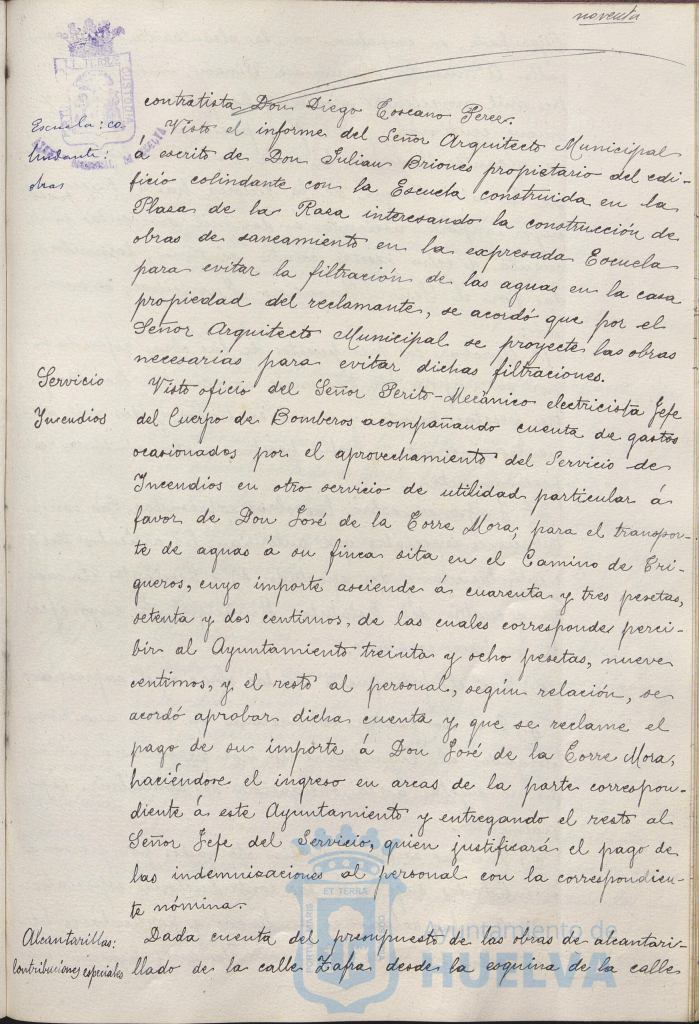 noventa
contratista Don Diego Toscano Perez.
Escuela: co-
lindante:
obras
Visto el informe del Señor Arquitecto Municipal
á escrito de Don Julian Briones propietario del edi-
ficio colindante con la Escuela construida en la
Plaza de la Raza interesando la construcción de
obras de saneamiento en la expresada Escuela
para evitar la filtración de las aguas en la casa
propiedad del reclamante, se acordó que por el
Señor Arquitecto Municipal se proyecte las obras
necesarias para evitar dichas filtraciones.
Servicio
Incendios
Visto oficio del Señor Perito-Mecánico electricista Jefe
del Cuerpo de Bomberos acompañando cuenta de gastos
ocasionados por el aprovechamiento del Servicio de
Incendios en otro servicio de utilidad particular á
favor de Don José de la Torre Mora, para el transpor-
te de aguas á su finca sita en el Camino de Tri-
gueros, cuyo importe asciende á cuarenta y tres pesetas,
setenta y dos centimos, de las cuales corresponde perci-
bir al Ayuntamiento treinta y ocho pesetas, nueve
centimos, y el resto al personal, según relación, se
acordó aprobar dicha cuenta y que se reclame el
pago de su importe á Don José de la Torre Mora,
haciéndose el ingreso en arcas de la parte correspon-
diente á este Ayuntamiento y entregando el resto al
Señor Jefe del Servicio, quien justificará el pago de
las indemnizaciones al personal con la correspondien-
te nómina.
Alcantarillas:
contribuciones especiales
Dada cuenta del presupuesto de las obras de alcantari-
llado de la calle Zafra desde la esquina de la calle
ET TERRÆ
Ayuntamiento de
HUELVA